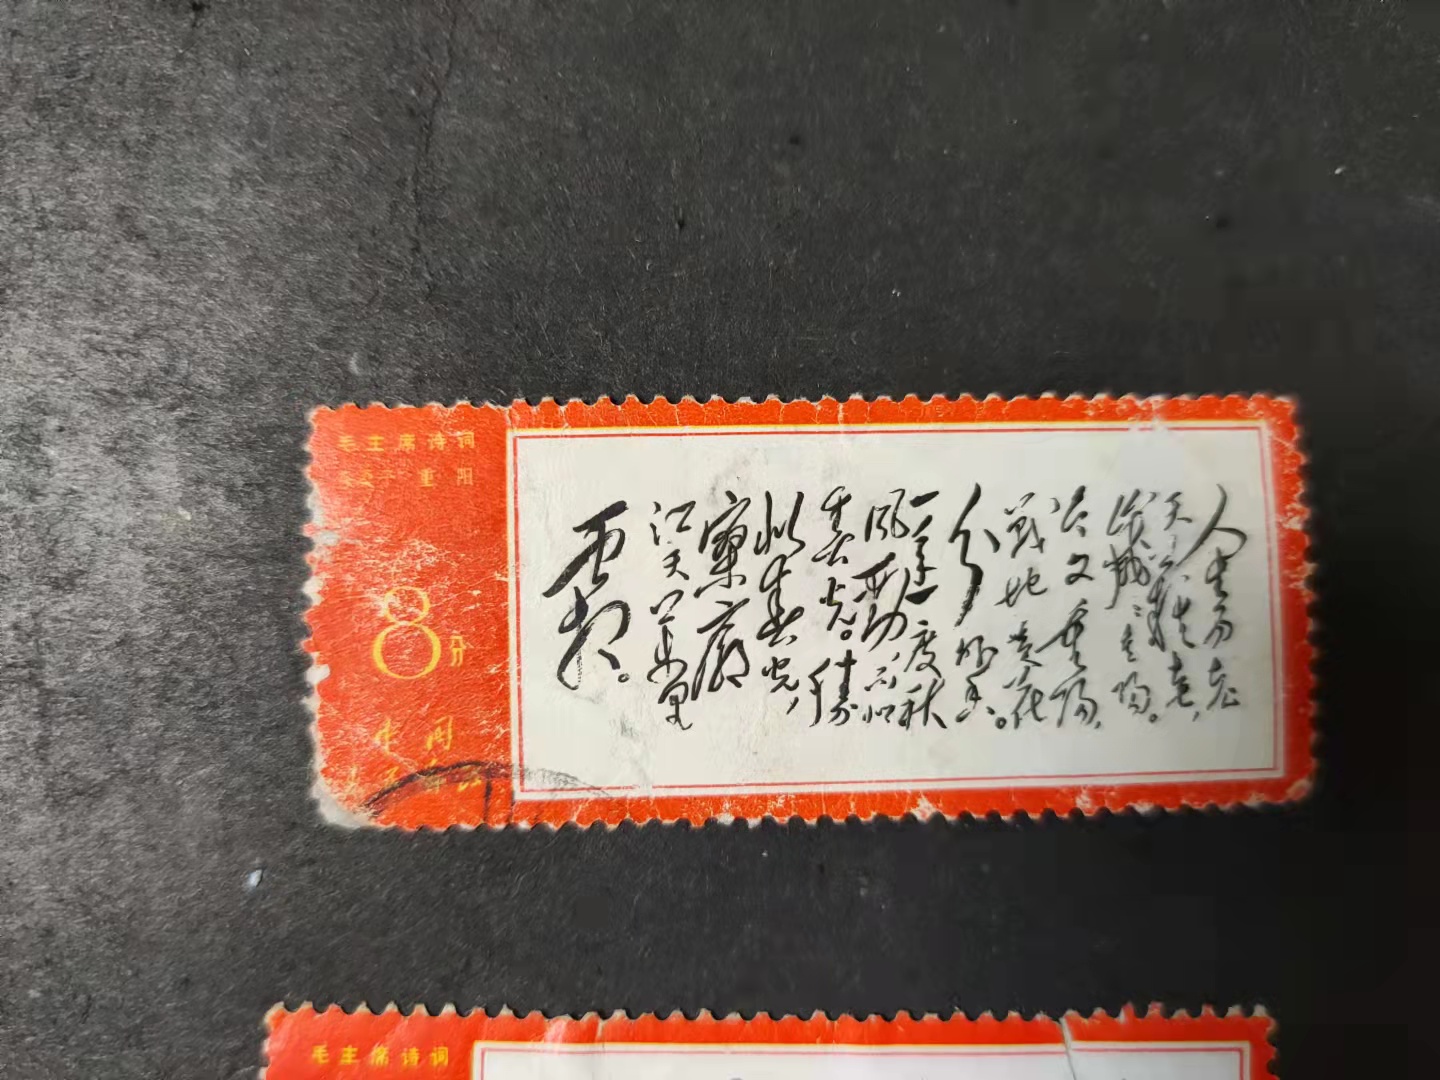 毛主席诗词
采桑子·重阳
8分
中国
人民邮政
人生易老
天难老,
岁岁重阳。
今又重阳,
战地黄花
分外香。
一年一度秋
风劲不似
春光。胜
似春光,
寥廓
江天万里
霜。
毛主席诗词